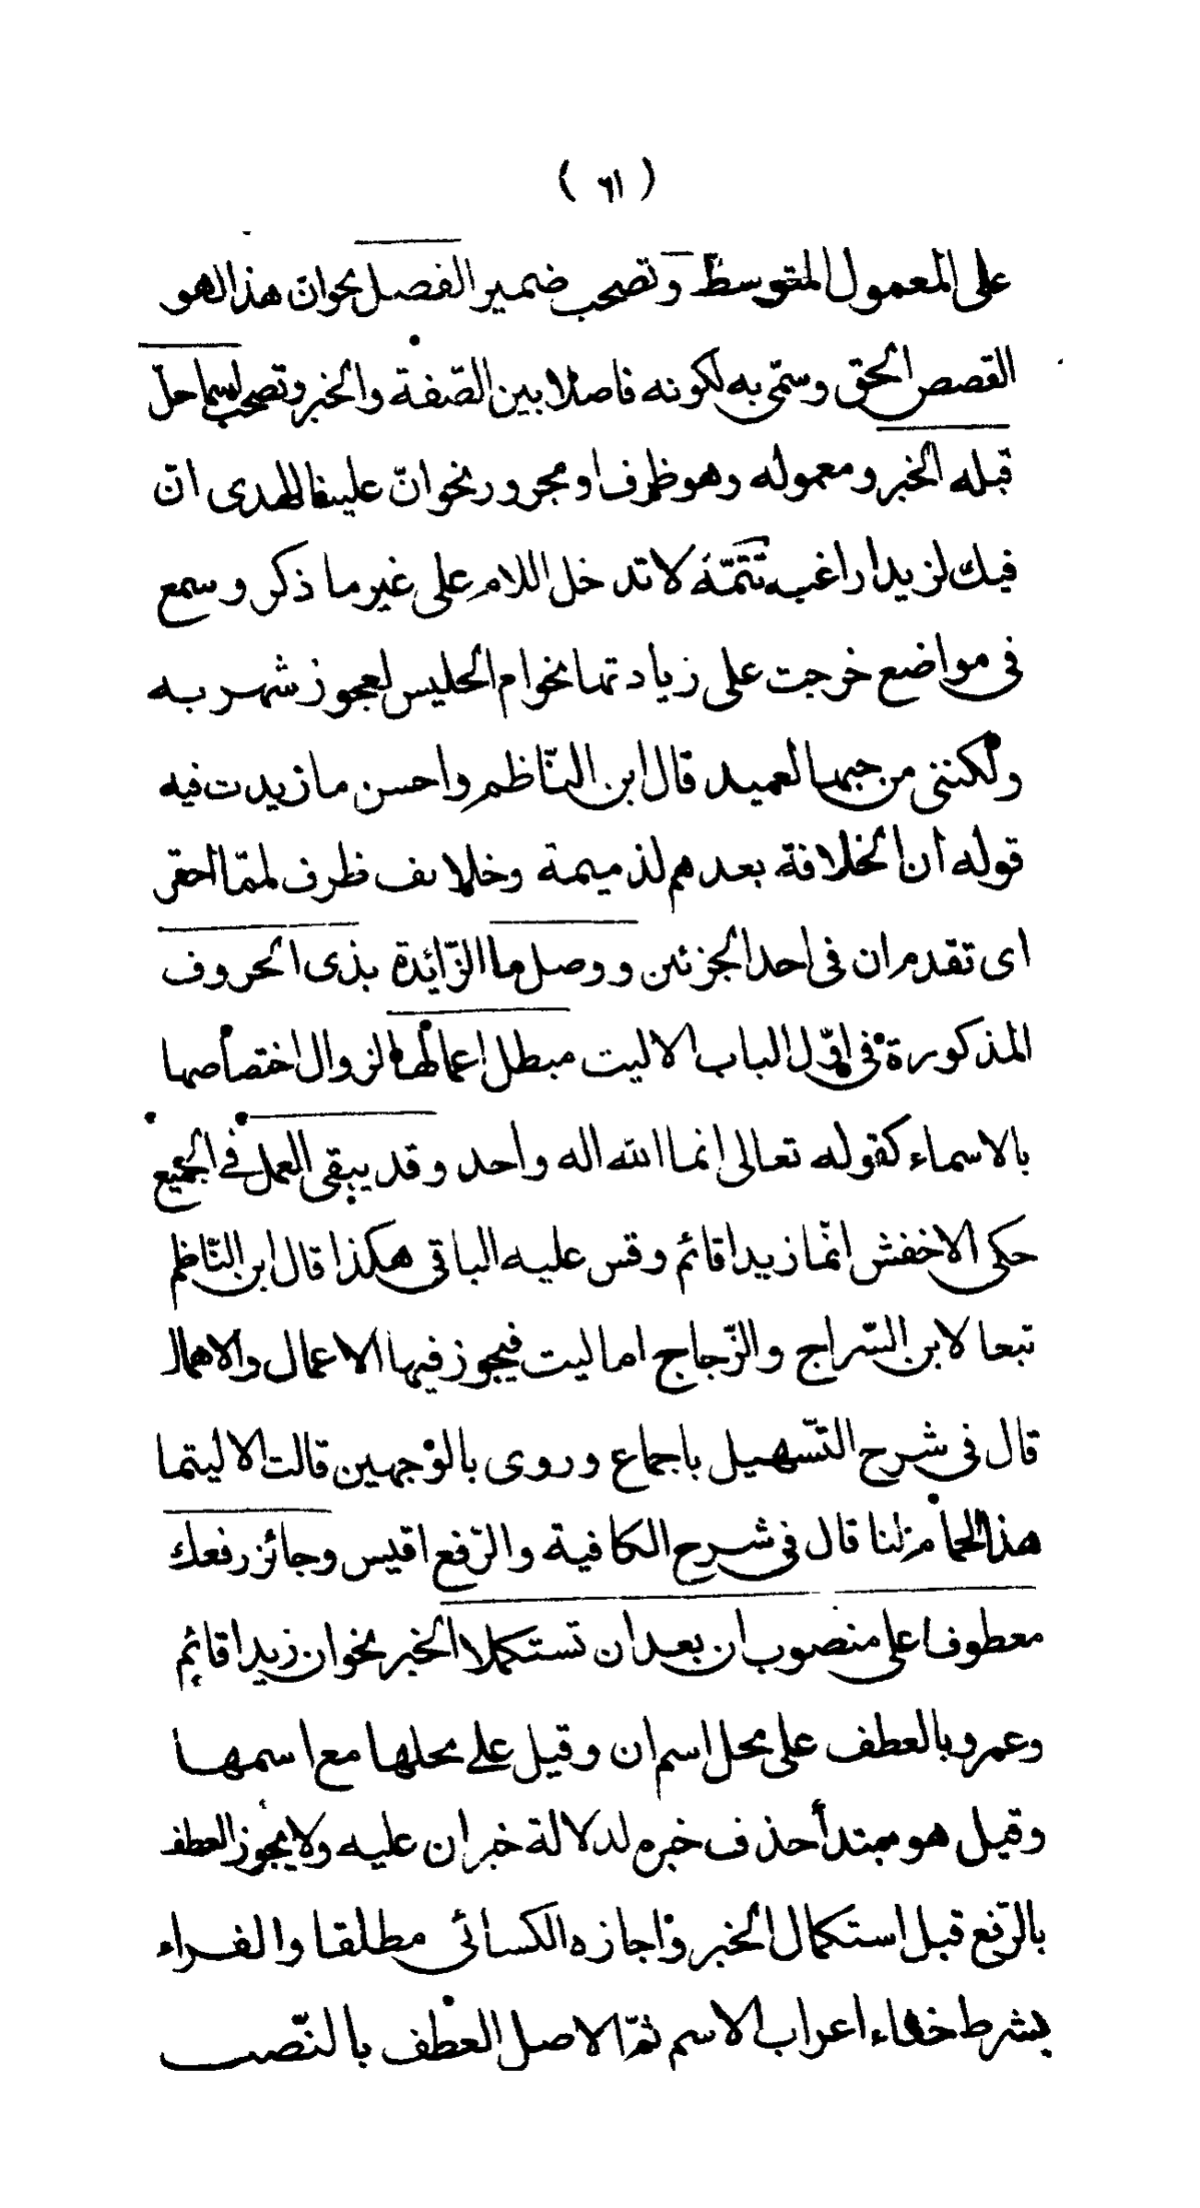 ( ٦١ )
على المعمول المتوسط وتصحب ضمير الفصل نحو ان هذا لهو
القصص الحق وسمّى به لكونه فاصلا بين الصّفة والخبر وتصحب اسما حلّ
قبله الخبر ومعموله وهو ظرف او مجرور نحو انّ علينا للهدى انّ
فيك لزيدا راغب تتمّة لا تدخل اللام على غير ما ذكر وسمع
فى مواضع خرجت على زيادتها نحو ام الحليس لعجوز شهربه
ولكننى من حبها لعميد قال ابن النّاظم واحسن ما زيدت فيه
قوله ان الخلافة بعدهم لذميمة وخلايف ظرف لممّا احقر
اى تقدم ان فى احد الجزئين ووصل ما الزّائدة بذى الحروف
المذكورة فى اوّل الباب الا ليت مبطل اعمالها لزوال اختصاصها
بالاسماء كقوله تعالى انما الله اله واحد وقد يبقى العمل فى الجميع
حكى الاخفش انّما زيدا قائم وقس عليه الباقى هكذا قال ابن النّاظم
تبعا لابن السّراج والزّجاج اما ليت فيجوز فيها الاعمال والاهمال
قال فى شرح التّسهيل باجماع وروى بالوجهين قالت الا ليتما
هذا الحمام لنا قال فى شرح الكافية والرّفع اقيس وجائز رفعك
معطوفا على منصوب ان بعد ان تستكملا الخبر نحو ان زيدا قائم
وعمرو بالعطف على محل اسم ان وقيل على محلها مع اسمها
وقيل هو مبتدأ حذف خبره لدلالة خبر ان عليه ولا يجوز العطف
بالرّفع قبل استكمال الخبر واجازه الكسائى مطلقا والفراء
بشرط خفاء اعراب الاسم ثمّ الاصل العطف بالنّصب